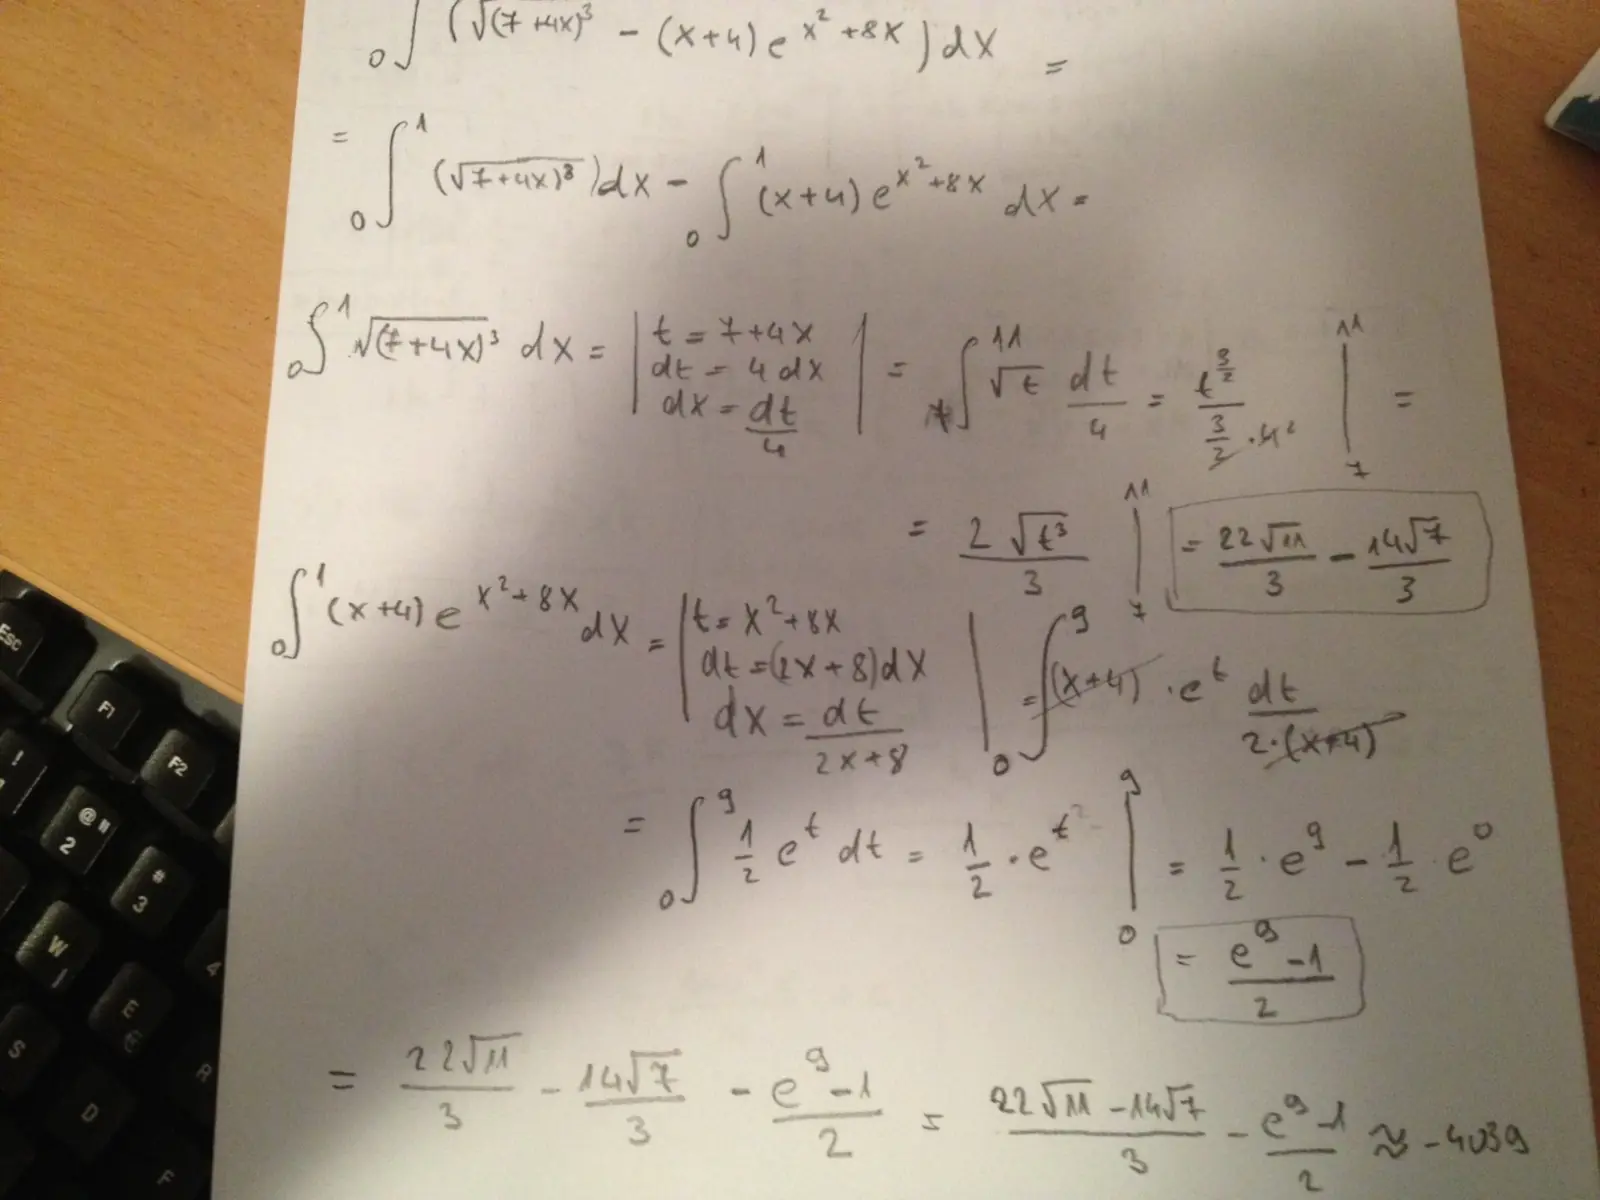 0∫ (√(7+4x)³ - (x+4) e^{x²+8x}) dx =
= 0∫^1 (√7+4x)³) dx - 0∫^1 (x+4) e^{x²+8x} dx =
0∫^1 √(7+4x)³ dx = | t = 7+4x dt = 4 dx dx = dt/4 | = 7∫^11 √t dt/4 = t^{3/2} / (3/2 · 4²) |_7^11 =
= 2√t³ / 3 |_7^11 = 22√11/3 - 14√7/3
0∫^1 (x+4) e^{x²+8x} dx = | t = x²+8x dt = (2x+8) dx dx = dt/(2x+8) | = 0∫^9 (x+4) · e^t dt/(2·(x+4))
= 0∫^9 1/2 e^t dt = 1/2 · e^t |_0^9 = 1/2 · e^9 - 1/2 · e^0
= (e^9 - 1)/2
= 22√11/3 - 14√7/3 - (e^9 - 1)/2 = (22√11 - 14√7)/3 - (e^9 - 1)/2 ≈ -4039
Esc
F1
F2
@ "
2
#
3
W
4
E
S
R
D
F